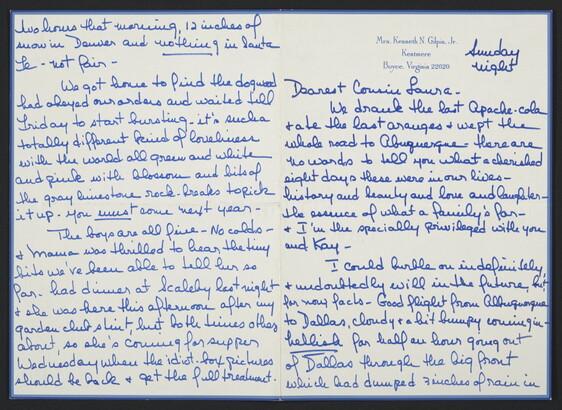 Mrs. Kenneth N. Gilpin, Jr.
Kentmere
Boyce, Virginia 22020
Sunday
night
Dearest Cousin Laura -
We drank the last Apache-cola
& ate the last oranges & wept the
whole road to Albuquerque - there are
no words to tell you what a cherished
eight days these were in our lives -
history and beauty and love and laughter -
the essence of what a family's for -
& I'm the specially privileged with you
and Kay -
I could burble on indefinitely,
& undoubtedly will in the future, but
for now facts - Good flight from Albuquerque
to Dallas, cloudy & a bit bumpy coming in -
hellish for half an hour going out
of Dallas through the big front
which had dumped 3 inches of rain in
two hours that morning, 12 inches of
snow in Denver and nothing in Santa
Fe - not fair -
We got home to find the dogwood
had obeyed our orders and waited till
Friday to start bursting - it's such a
totally different kind of loveliness
with the world all green and white
and pink with blossom and bits of
the gray limestone rock-breaks to pick
it up - you must come next year -
The boys are all fine - No colds -
& Mama was thrilled to hear the tiny
bits we've been able to tell her so
far - had dinner at Scaleby last night
& she was here this afternoon after my
garden club stint, but both times others
about, so she's coming for supper
Wednesday when the idiot-box pictures
should be back & get the full treatment.